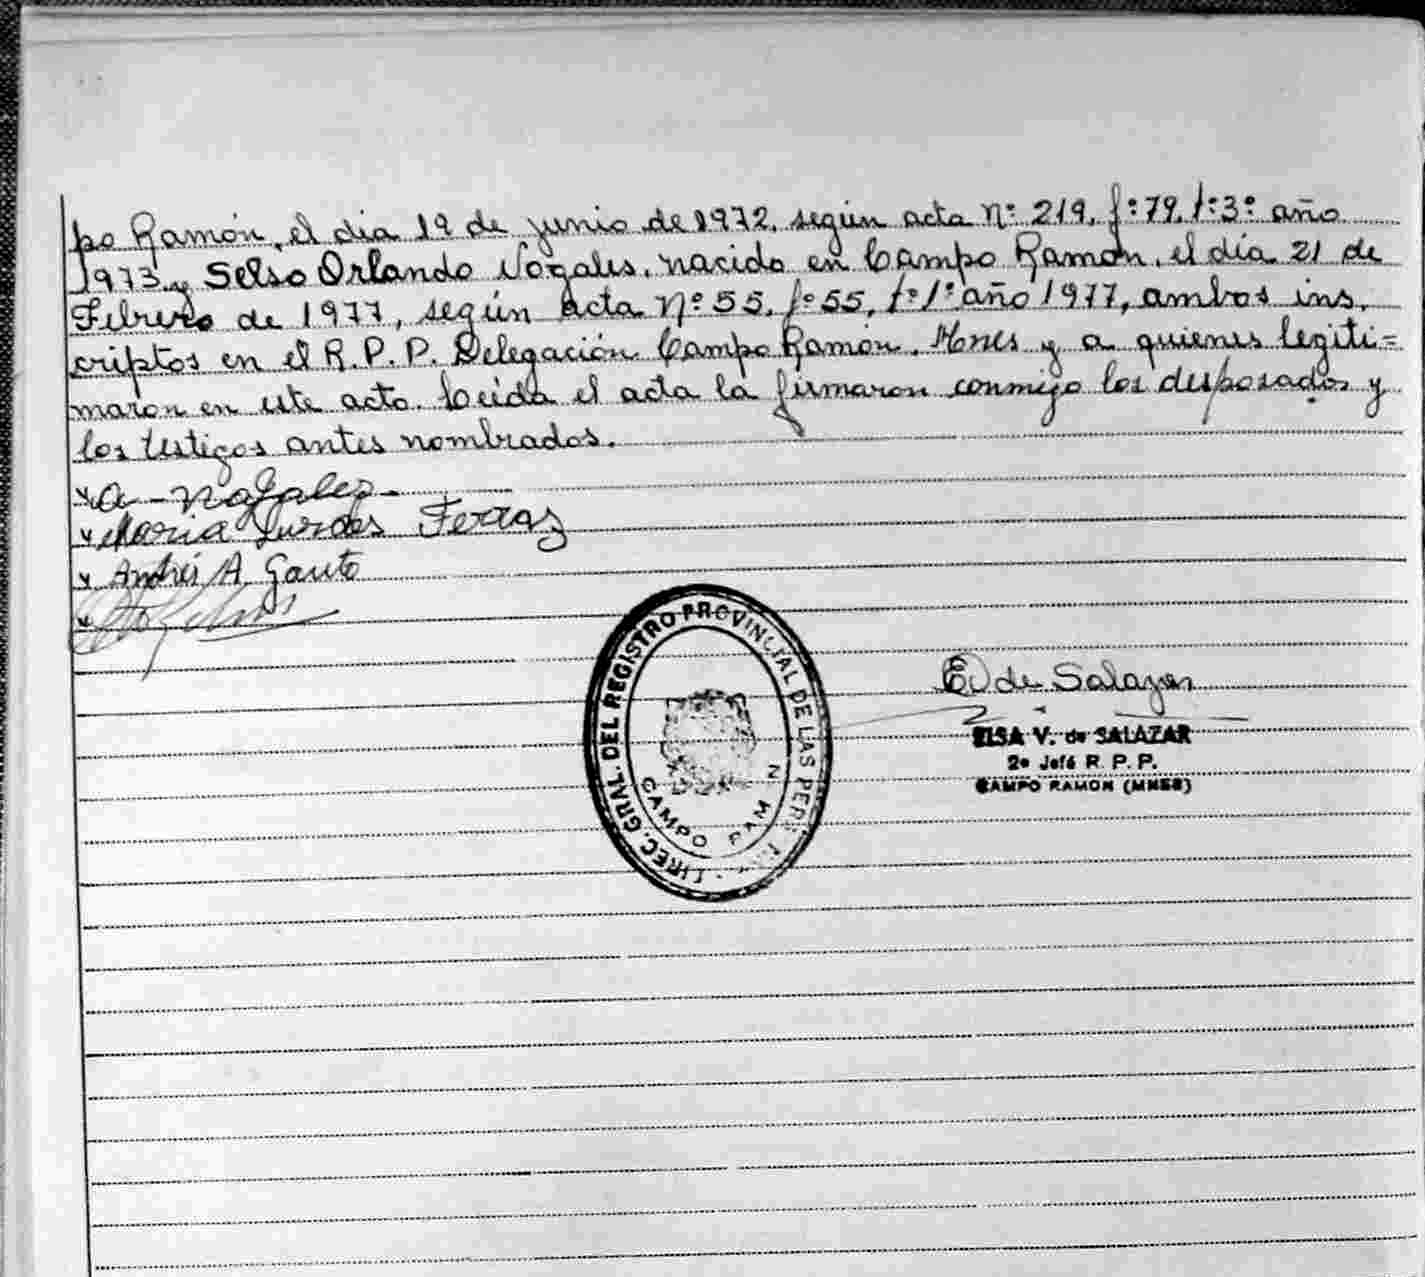 po Ramón, el día 19 de junio de 1972, según acta nº 219, fº 79, tº 3º año
1973 y Selso Orlando Nogales, nacido en Campo Ramón, el día 21 de
Febrero de 1977, según acta Nº 55, fº 55, tº 1º año 1977, ambos ins.
criptos en el R.P.P. Delegación Campo Ramón, Mnes y a quienes legiti=
maron en este acto. Leída el acta la firmaron conmigo los desposados y
los testigos antes nombrados.
x a - Nogales -
x Maria Lurdes Ferraz
x Andrés A. Gauto
x
DIREC. GRAL. DEL REGISTRO PROVINCIAL DE LAS
CAMPO
E V de Salazar
ELSA V. de SALAZAR
2º Jefe R. P. P.
CAMPO RAMON (MNES)